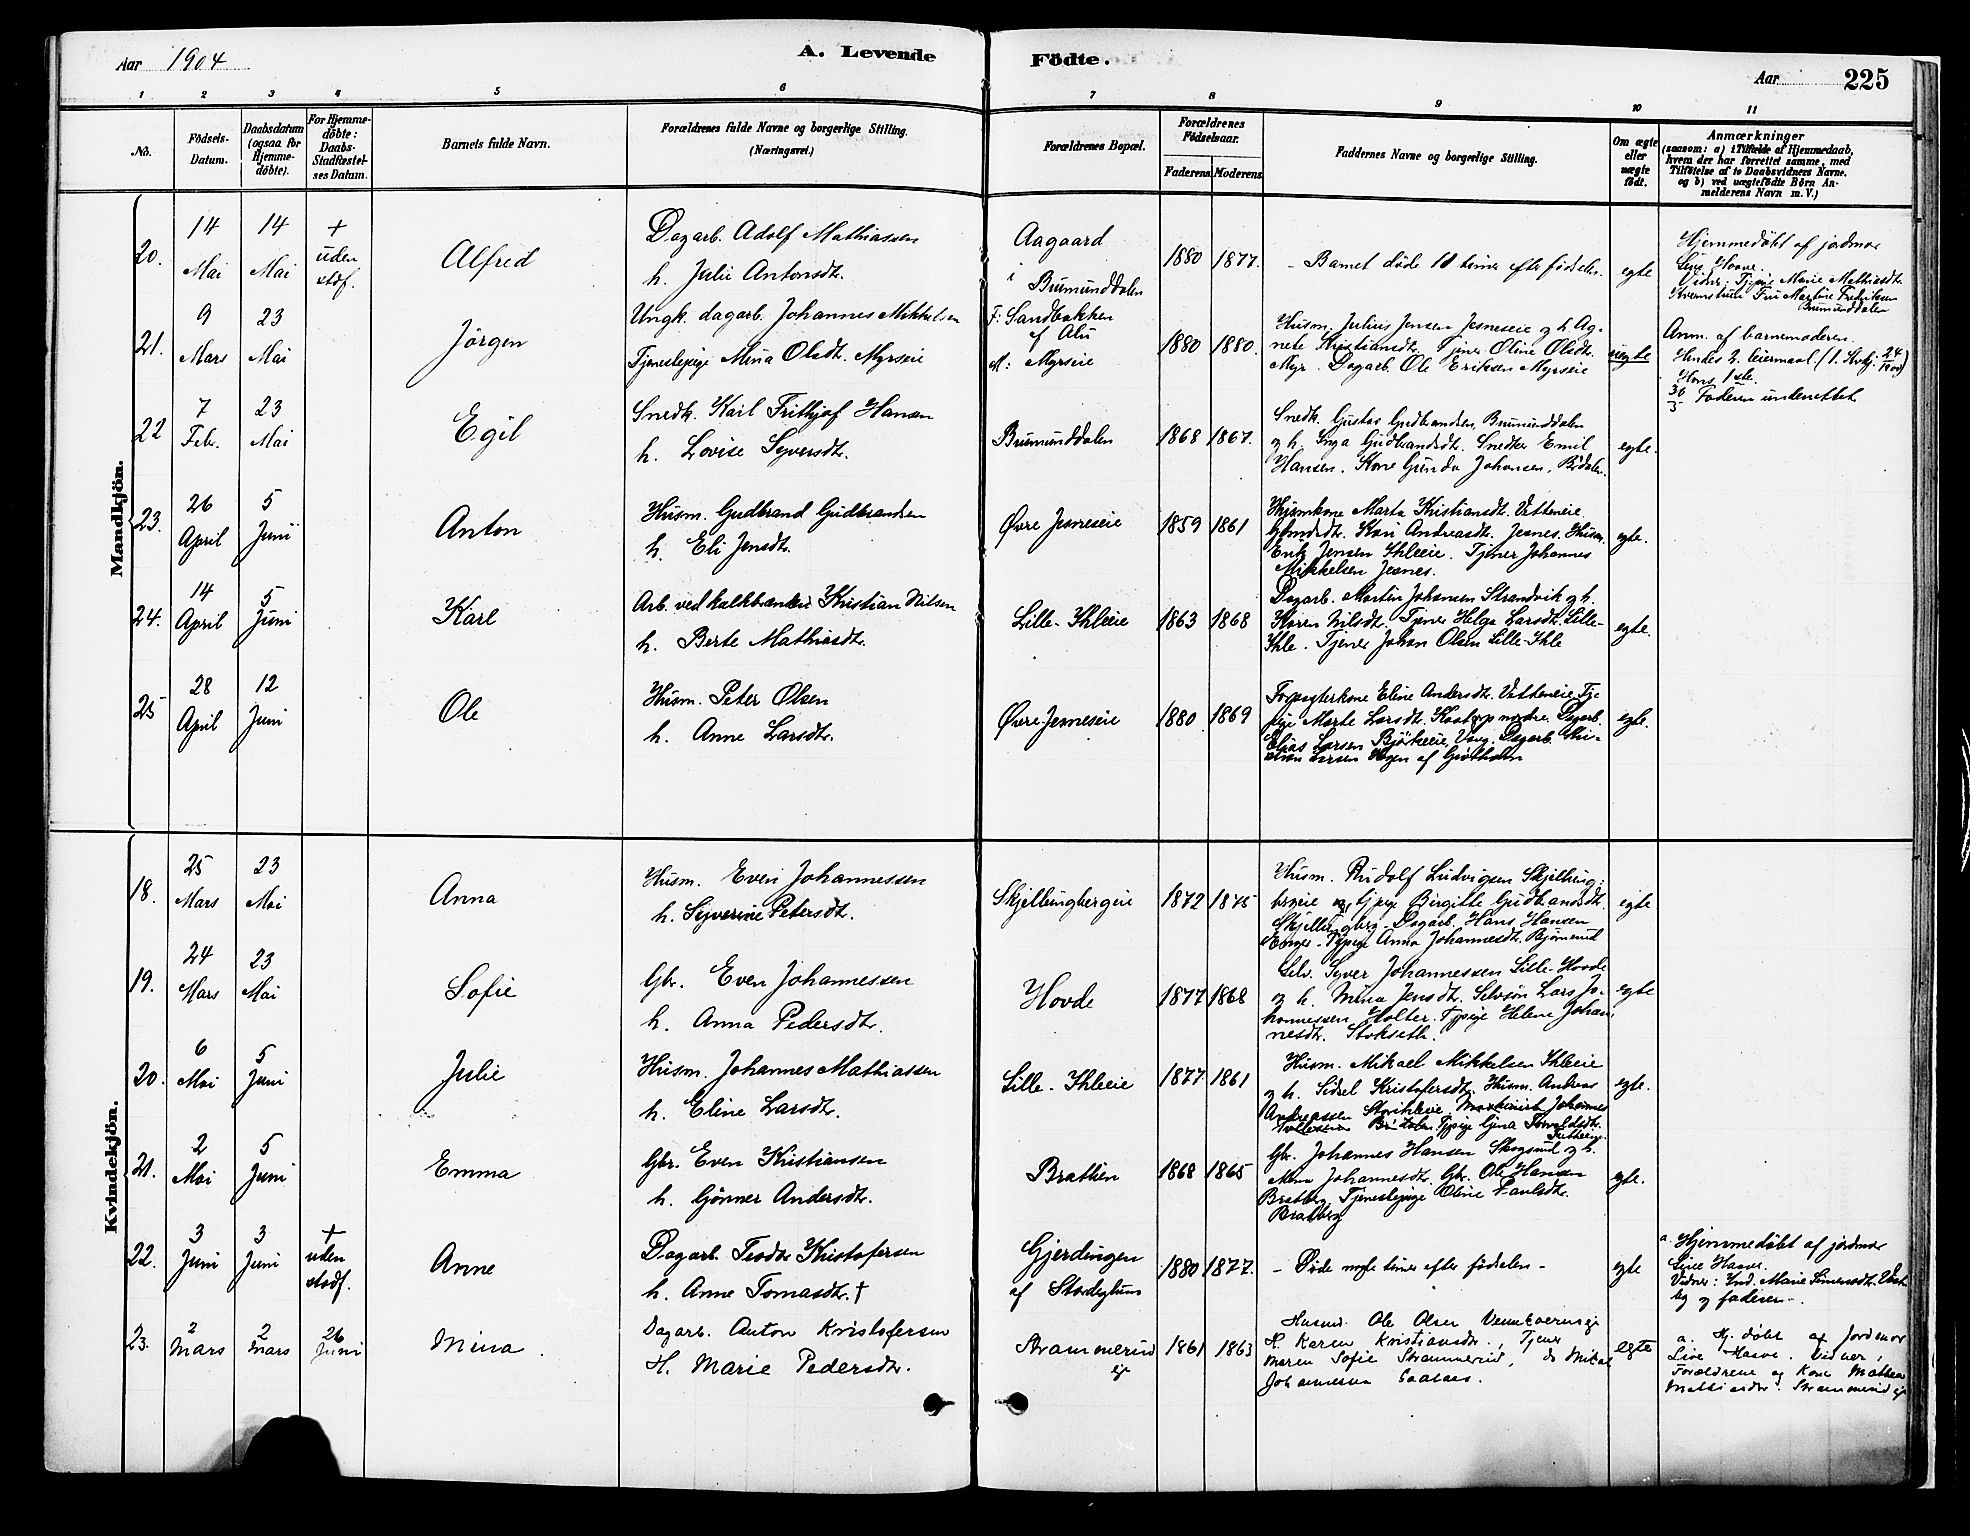 Aar 1904
A. Levende
Födte.
Aar
225
1 2 3 4 5 6 7 8 9 10 11
No.
Födsels-Datum.
Daabsdatum (ogsaa for Hjemmedöbte).
For Hjemmedöbte: Daabs-Stadfæstelses Datum.
Barnets fulde Navn.
Forældrenes fulde Navne og borgerlige Stilling.
(Næringsvei.)
Forældrenes Bopæl.
Forældrenes Födselsaar.
Faderens Moderens
Faddernes Navne og borgerlige Stilling.
Om ægte eller uægte födt.
Anmærkninger
(saasom: a) i Tilfælde af Hjemmedaab, hvem der har forrettet samme, med Tilföielse af to Daabsvidners Navne. og b) ved uægtefödte Börn Anmelderens Navn m. V.)
Mandkjön.
20.
14 Mai
14 Mai
+ uden stdf.
Alfred
Dagarb. Adolf Mathiassen
h. Julie Antonsdt.
Aagaard
i Brumunddalen
1880 1877.
- Barnet døde 10 timer efter fødselen.
egte
Hjemmedøbt af jordmor
Vidner: Tjpige Marie Mathiasdt.
Fru Martine Fredriksen
Brumunddalen
21.
9 Mars
23 Mai
Jørgen
Ungk. dagarb. Johannes Mikkelsen
Tjenestepige Mina Olsdt. Myrseie
F: Sandbakken
af Alu
M: Myrseie
1880 1880.
Husm. Julius Jensen Jesneseie og h. Ag-
nete Kristiansdt. Tjener Oline Olsdt.
Myr. Dagarb. Ole Eriksen Myrseie
uegte
Anm. af barnemoderen.
Hendes 2. leiermaal (1. Kvkj. 24/1900)
Hans 1ste.
30/3 Faderen underrettet.
22
7 Febr.
23 Mai
Egil
Snedk. Karl Frithjof Hansen
h. Lovise Syversdt.
Brumunddalen
1868 1867.
Snedk. Gustav Gudbrandsen, Brumunddalen
og h. Inga Gudbrandsdt. Snedker Emil
Hansen. Kone Gunda Johansen, Brdalen.
egte.
23.
26 April
5 Juni
Anton
Husm. Gudbrand Gudbrandsen
h. Eli Jensdt.
Øvre Jesneseie
1859 1861
Husmkone Marta Kristiansdt. Vetteneie.
Gbmdsdt. Kari Andreasdt. Jesnes. Husm.
Erik Jensen Ihleeie. Tjener Johannes
Mikkelsen Jesnes.
egte.
24.
14 April
5 Juni
Karl
Arb. ved kalkbrænderi Kristian Nilsen
h. Berte Mathiasdt.
Lille-Ihleeie
1863 1868
Dagarb. Martin Johansen Strandvik og h.
Karen Nilsdt. Tjener Helga Larsdt. Lille-
Ihle. Tjener Johan Olsen Lille-Ihle
egte.
25
28 April
12 Juni
Ole
Husm. Peter Olsen
h. Anne Larsdt.
Øvre Jesneseie
1880 1869
Forpagterkone Eline Andersdt. Vetteneie. Tje-
pige Marte Larsdt. Kaatorp nordre. Dagarb.
Elias Larsen Bjørkeeie, Vang. Dagarb. Kri-
stian Larsen Hagen af
egte.
Kvindekjön.
18.
25 Mars
23 Mai
Anna
Husm. Even Johannessen
h. Syverine Petersdt.
Skjellungbergeie
1872 1875
Husm. Rudolf Ludvigsen Skjellung-
bergeie og Tjpige Birgitte Gudbrandsdt.
Skjellungberg. Dagarb. Hans Hansen
Enger. Tjpige Anna Johannesdt. Bjørnerud
egte
19.
24 Mars
23 Mai
Sofie
Gbr. Even Johannessen
h. Anna Pedersdt.
Hovde
1877 1868
Selv. Syver Johannessen Lille-Hovde
og h. Mina Jensdt. Selvsøn Lars Jo-
hannessen Holter. Tjpige Helene Johan-
nesdt. Stokseth.
egte
20.
6 Mai
5 Juni
Julie
Husm. Johannes Mathiassen
h. Eline Larsdt.
Lille-Ihleeie
1877 1861
Husm. Mikael Mikkelsen Ihleeie
og h. Sidsel Kristofersdt. Husm. Andreas
Andreassen Storihleeie. Maskinist Johannes
Brdalen. Tjpige Gina Torvaldsdt.
egte.
21.
2 Mai
5 Juni
Emma
Gbr. Even Kristiansen
h. Gønner Andersdt.
Brathen
1868 1865
Gbr. Johannes Hansen Skogsrud og h.
Mina Johannesdt. Gbr. Ole Hansen
Bratberg. Tjenestepige Oline Paulsdt.
Bratberg
egte.
22.
3 Juni
3 Juni
+ uden stdf.
Anne
Dagarb. Teodor Kristofersen
h. Anne Tomasdt. †
Gjerdingen
af
1880 1877.
- Døde nogle timer efter fødselen -
egte
a. Hjemmedøbt af jordmor
Vidner: Ind. Marie Simensdt.
og faderen.
23.
2 Mars
2 Mars
26 Juni
Mina
Dagarb. Anton Kristofersen
H. Marie Pedersdtr.
Strammerud
ej
1861 1863
Husmd. Ole Olsen
H. Karen Kristiansdtr., Tjener
Maren Sofie Strammerud, do Mikal
Johannessen
egte
a. Hj. døbt af Jordmor
Vidner,
Forældrene og Kone Mathea
Mathiasdtr. Strammerud ej